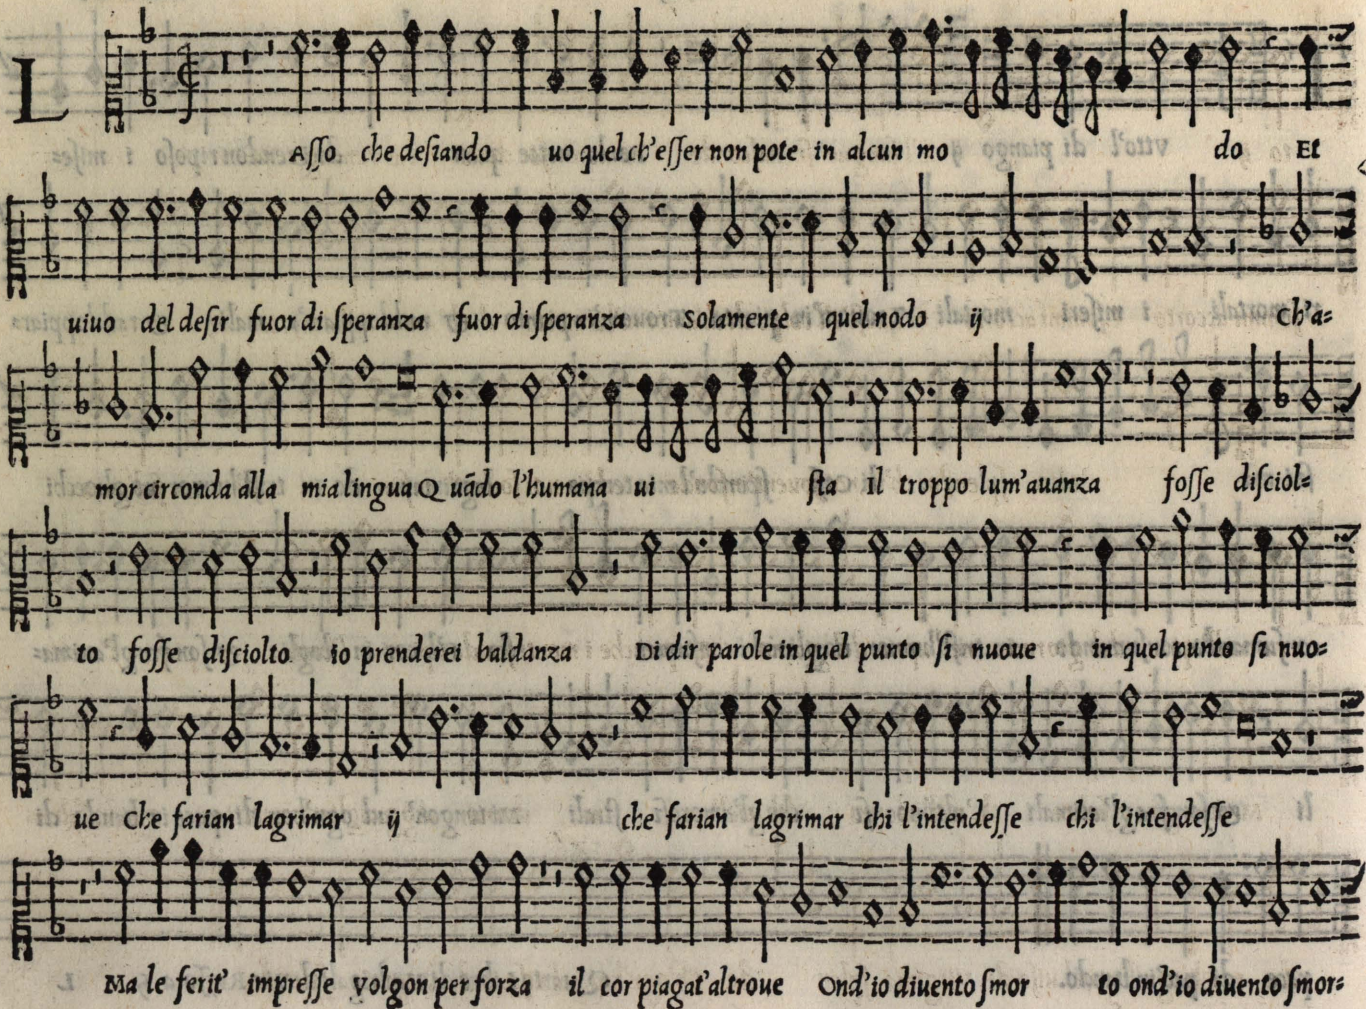 LAsso che desiando uo quel ch'esser non pote in alcun mo do Et
uiuo del desir fuor di speranza fuor di speranza Solamente quel nodo ij Ch'a=
mor circonda alla mia lingua Quãdo l'humana ui sta Il troppo lum'auanza fosse disciol=
to fosse disciolto io prenderei baldanza Di dir parole in quel punto si nuoue in quel punto si nuo=
ue Che farian lagrimar ij che farian lagrimar chi l'intendesse chi l'intendesse
Ma le ferit' impresse Volgon per forza il cor piagat'altroue Ond'io diuento smor to ond'io diuento smor=